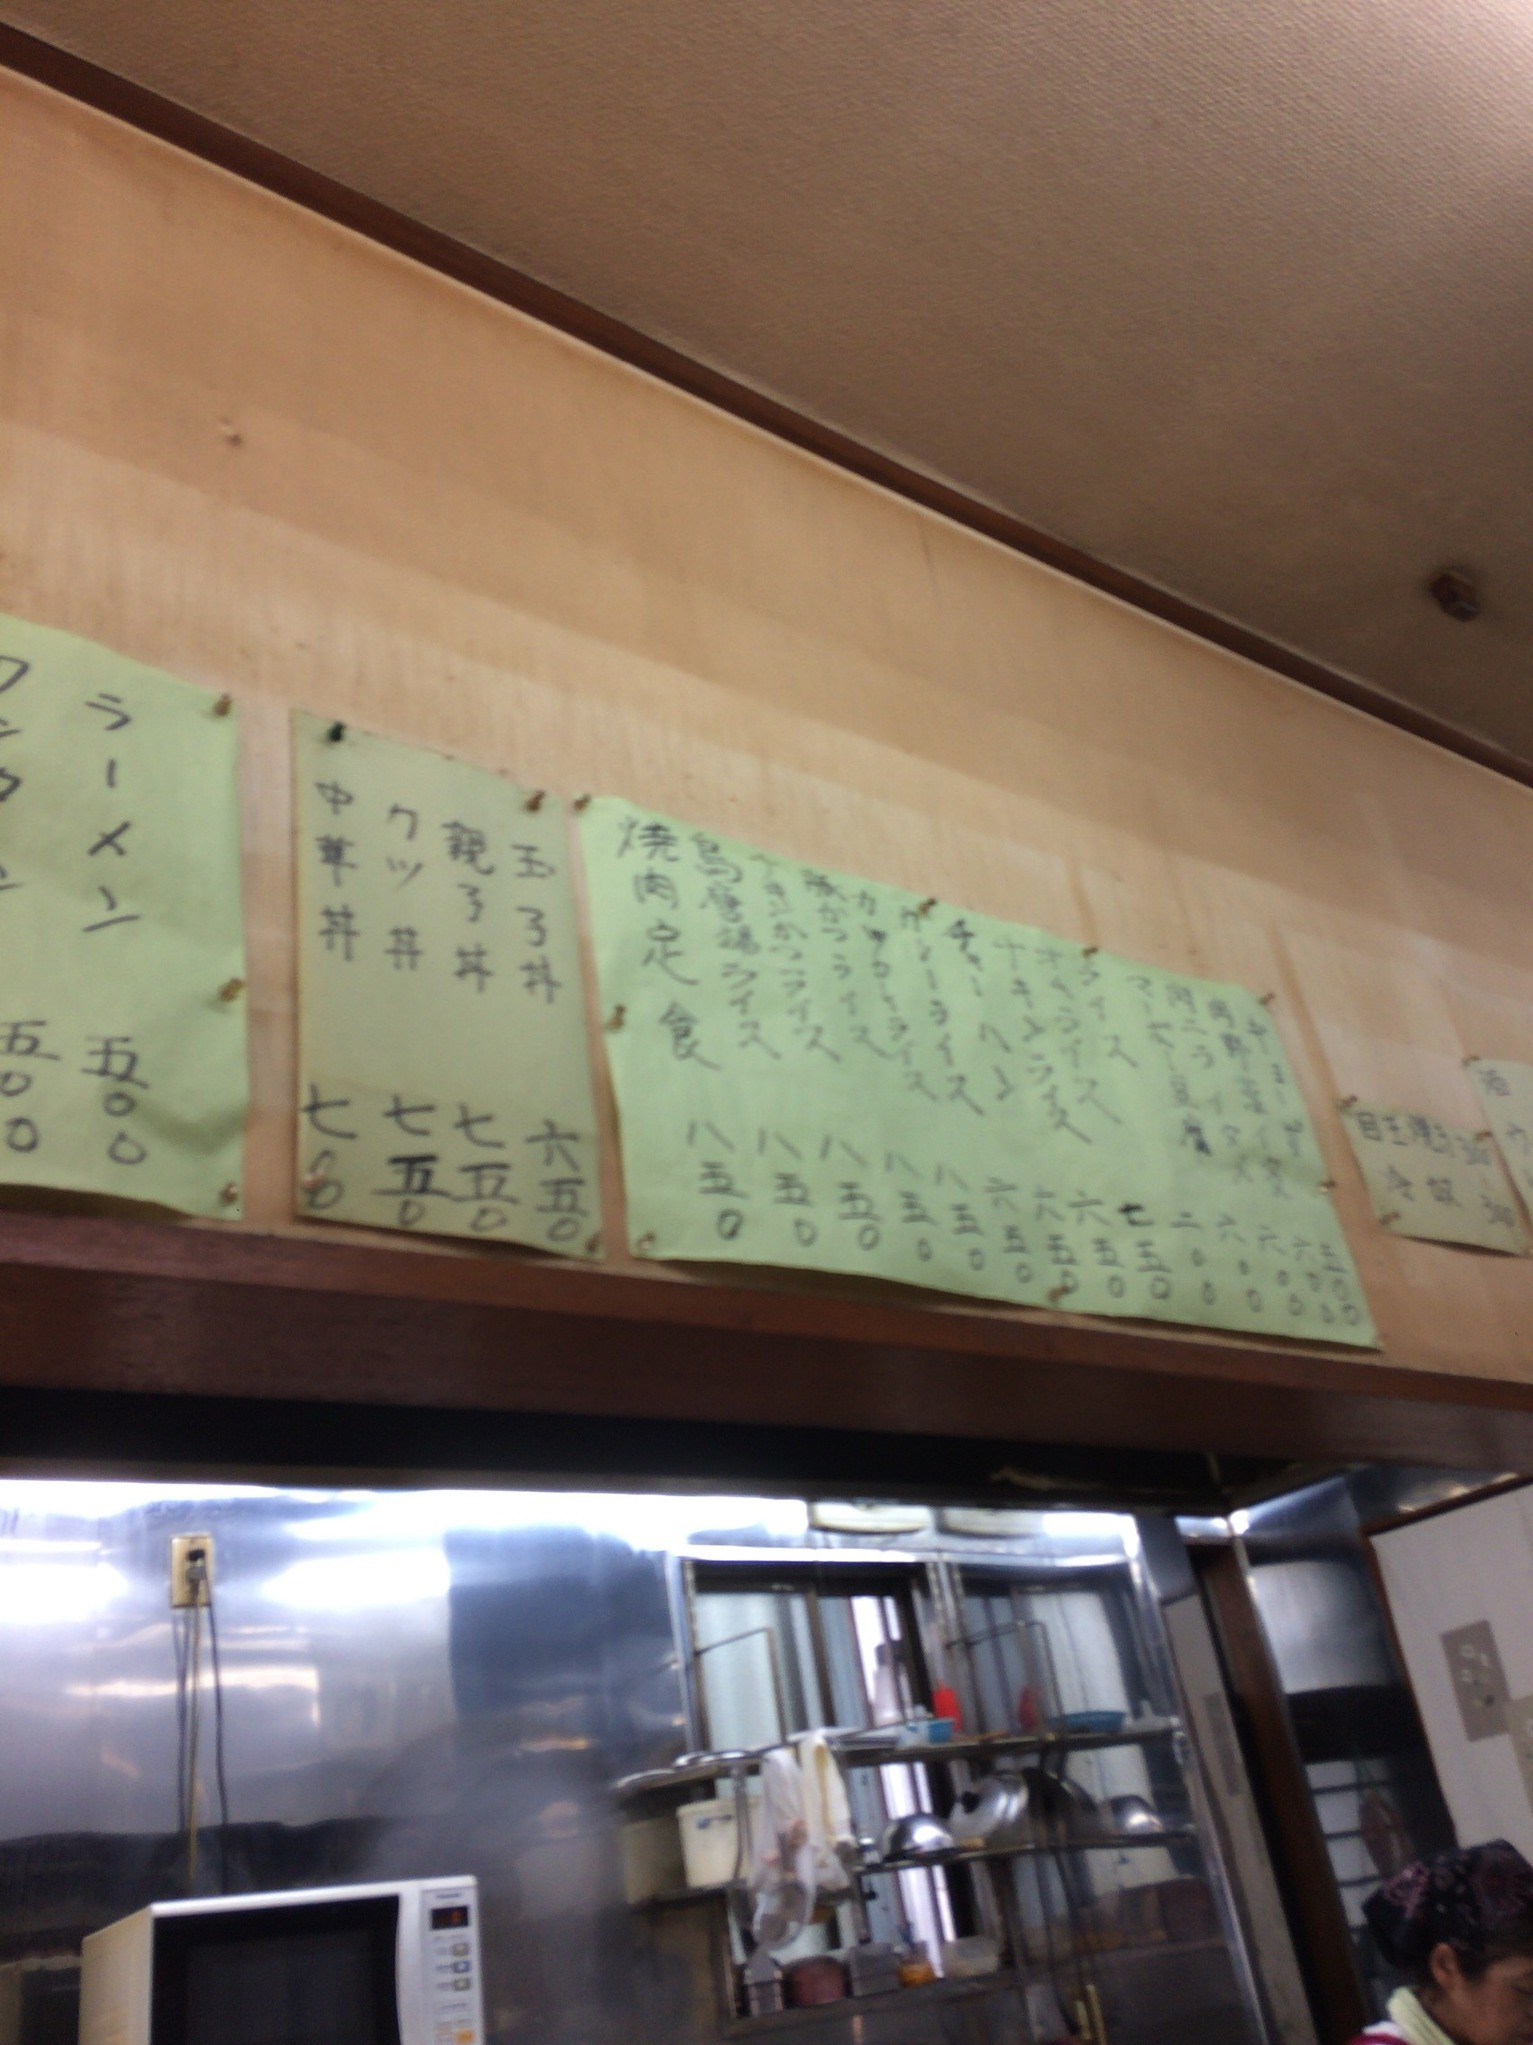 ラーメン 五〇〇
五〇〇
玉子丼 六五〇
親子丼 七五〇
カツ丼 七五〇
中華丼 七〇〇
ギョーザ 五〇〇
肉野菜イタメ 六〇〇
肉ニライタメ 六〇〇
マーボー豆腐 六〇〇
ライス 二〇〇
オムライス 七五〇
チキンライス 六五〇
チャーハン 六五〇
カレーライス 六五〇
カツカレーライス 八五〇
豚かつライス 八五〇
チキンかつライス 八五〇
鳥唐揚ライス 八五〇
焼肉定食 八五〇